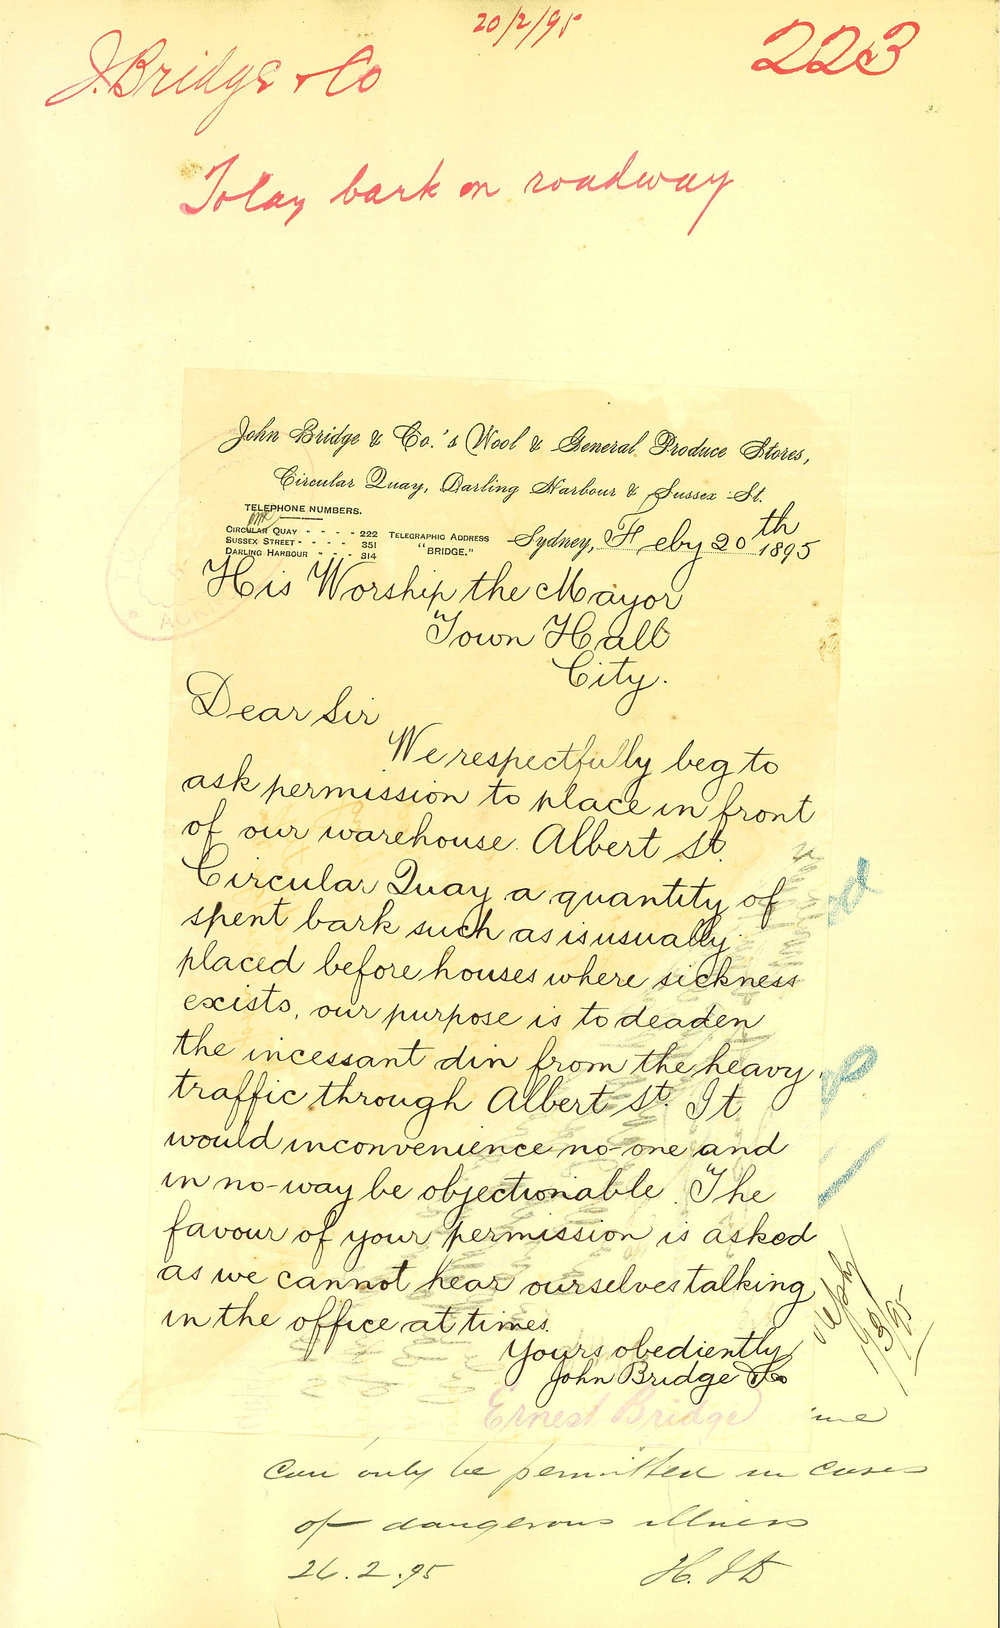 20/2/95
223
J. Bridge & Co
To lay bark on roadway
John Bridge & Co.'s Wool & General Produce Stores,
Circular Quay, Darling Harbour & Sussex St.
TELEPHONE NUMBERS.
CIRCULAR QUAY - - - - 222
SUSSEX STREET - - - - - 351
DARLING HARBOUR - - - 314
TELEGRAPHIC ADDRESS
"BRIDGE."
Sydney, Feby 20th 1895
His Worship the Mayor
Town Hall
City.
Dear Sir
We respectfully beg to
ask permission to place in front
of our warehouse Albert St.
Circular Quay a quantity of
spent bark such as is usually
placed before houses where sickness
exists, our purpose is to deaden
the incessant din from the heavy
traffic through Albert St. It
would inconvenience no-one and
in no-way be objectionable. The
favour of your permission is asked
as we cannot hear ourselves talking
in the office at times.
Yours obediently
John Bridge & Co
Ernest Bridge
1/3/95
can only be permitted in cases
of dangerous illness
26.2.95